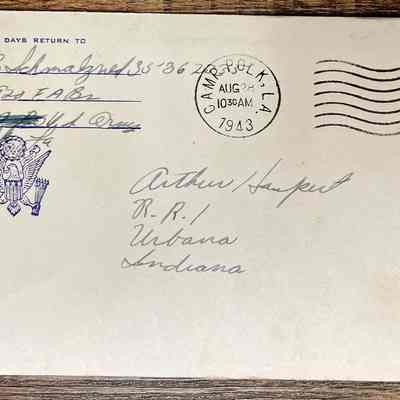 DAYS RETURN TO
Schmalzried 35-362
F A Bn
La
CAMP POLK, LA.
AUG 28
10 30 AM
1943
Arthur Haupert
R.R. 1
Urbana
Indiana